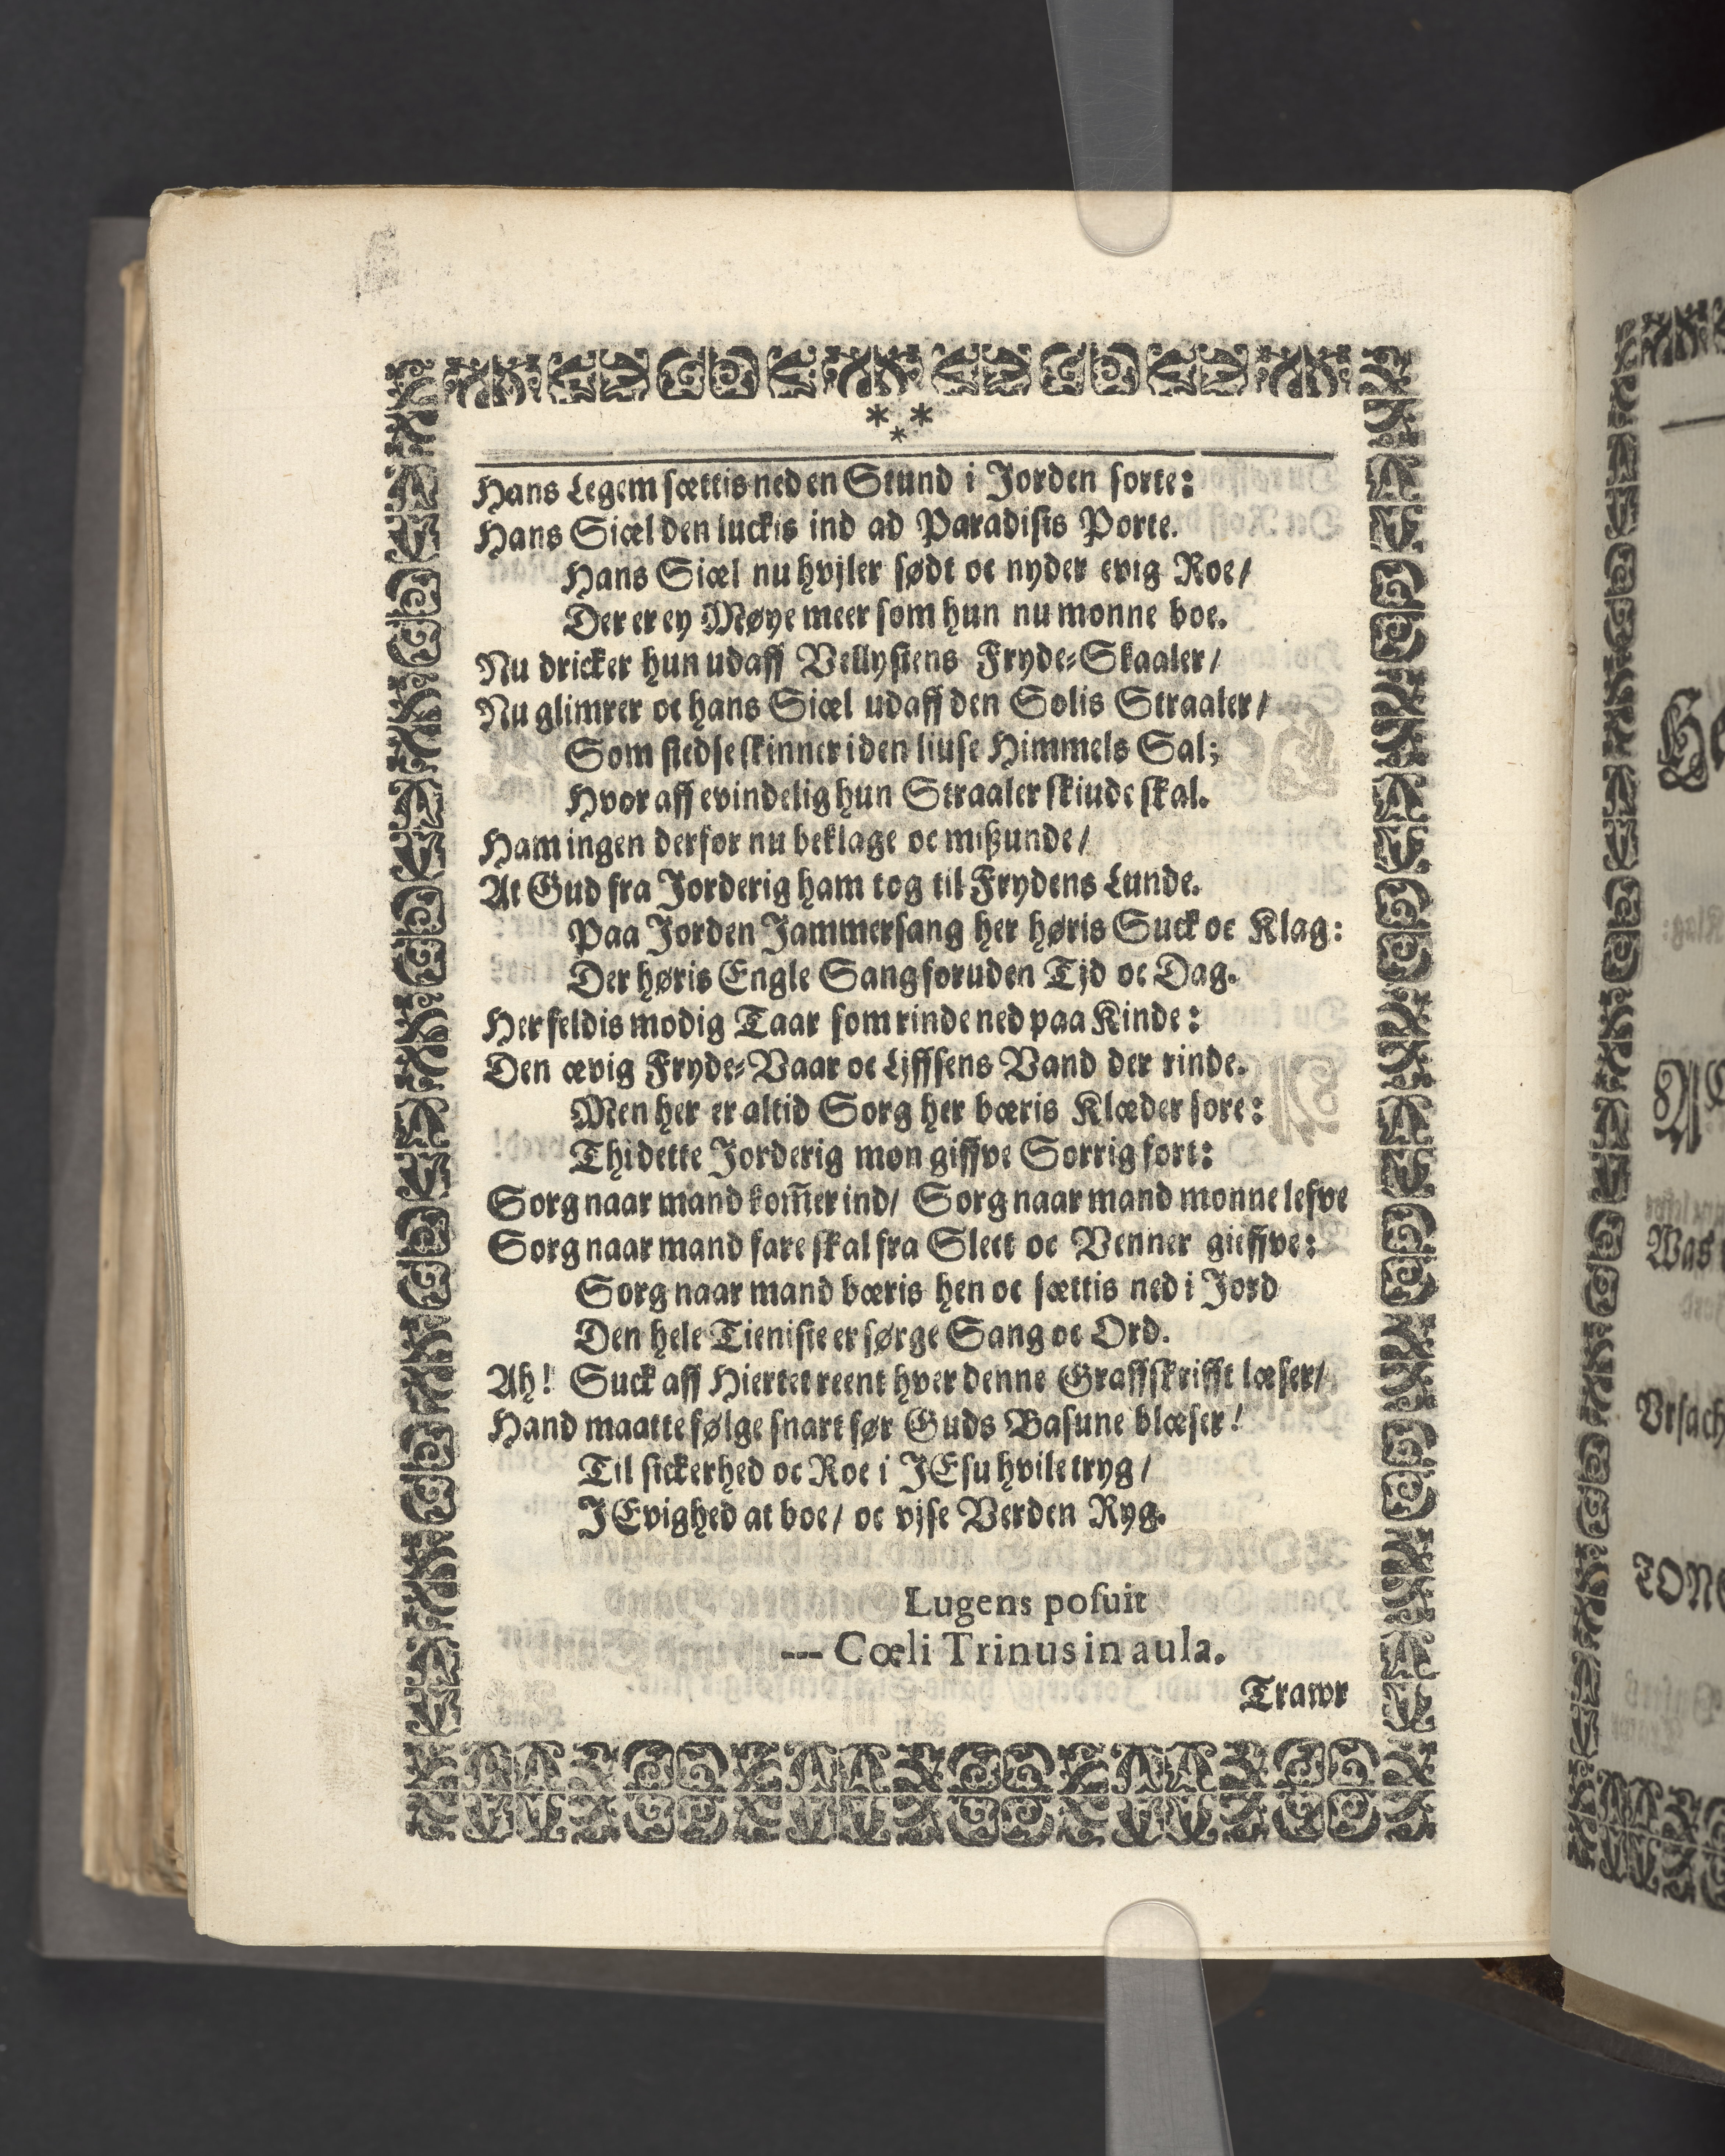 * *
*
Hans Legem sættis ned en Stund i Jorden sorte:
Hans Siæl den luckis ind ad Paradisis Porte.
Hans Siæl nu hvjler sødt oc nyder evig Roe/
Der er ey Møye meer som hun nu monne boe.
Nu dricker hun udaff Vellystens Fryde-Skaaler/
Nu glimrer oc hans Siæl udaff den Solis Straaler/
Som stedse skinner i den liuse Himmels Sal;
Hvor aff evindelig hun Straaler skiude skal.
Ham ingen derfor nu beklage oc mißunde/
At Gud fra Jorderig ham tog til Frydens Lunde.
Paa Jorden Jammersang her høris Suck oc Klag:
Der høris Engle Sang foruden Tjd oc Dag.
Her feldis modig Taar som rinde ned paa Kinde:
Den ævig Fryde-Vaar oc Ljffsens Vand der rinde.
Men her er altid Sorg her bæris Klæder sore:
Thi dette Jorderig mon giffve Sorrig fort:
Sorg naar mand kom̅er ind/ Sorg naar mand monne lefve
Sorg naar mand fare skal fra Slect oc Venner gieffve:
Sorg naar mand bæris hen oc sættis ned i Jord
Den hele Tieniste er sørge Sang oc Ord.
Ah! Suck aff Hiertet reent hver denne Graffskrifft læser/
Hand maatte følge snart før Guds Basune blæser!
Til sickerhed oc Roe i JEsu hvile tryg/
J Evighed at boe/ oc vjse Verden Ryg.
Lugens posuit
--- Cœli Trinus in aula.
Trawr